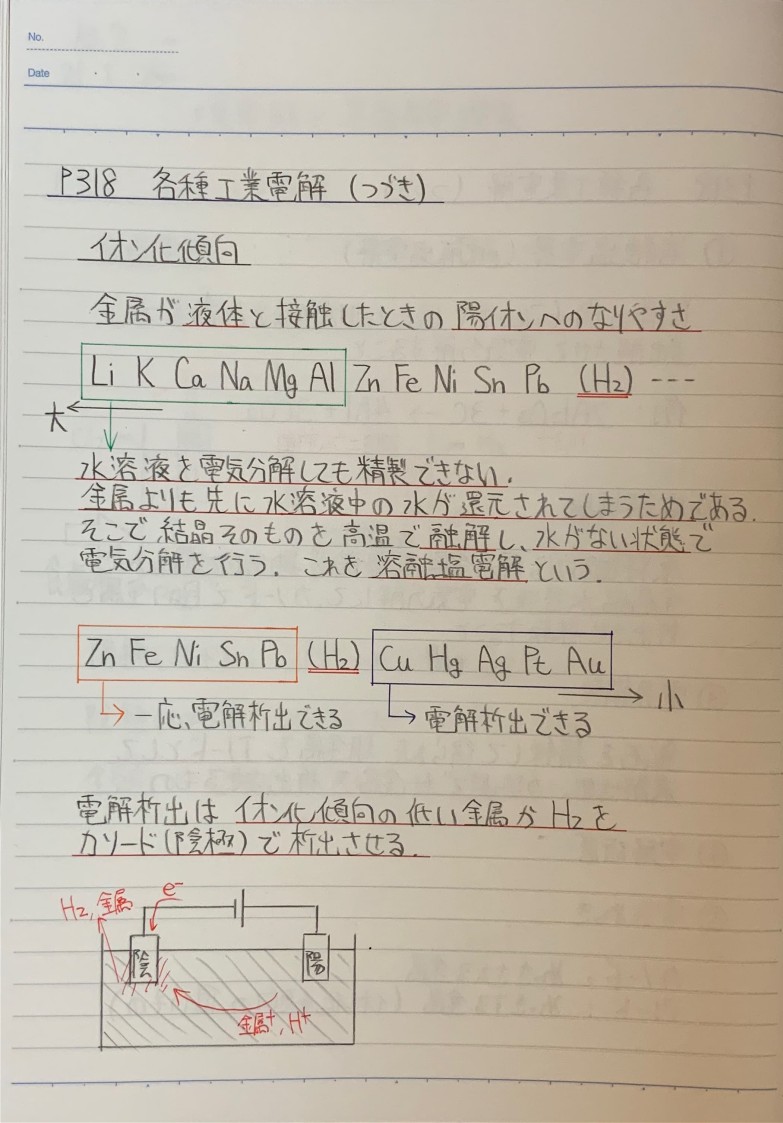 No.
Date
P318 各種工業電解(つづき)
イオン化傾向
金属が液体と接触したときの陽イオンへのなりやすさ
Li K Ca Na Mg Al Zn Fe Ni Sn Pb (H₂) ---
大
水溶液を電気分解しても精製できない.
金属よりも先に水溶液中の水が還元されてしまうためである.
そこで結晶そのものを高温で融解し、水がない状態で
電気分解を行う. これを溶融塩電解という.
Zn Fe Ni Sn Pb (H₂) Cu Hg Ag Pt Au
小
一応、電解析出できる 電解析出できる
電解析出はイオン化傾向の低い金属かH₂を
カソード(陰極)で析出させる.
e⁻
H₂,金属
陰 陽
金属⁺, H⁺